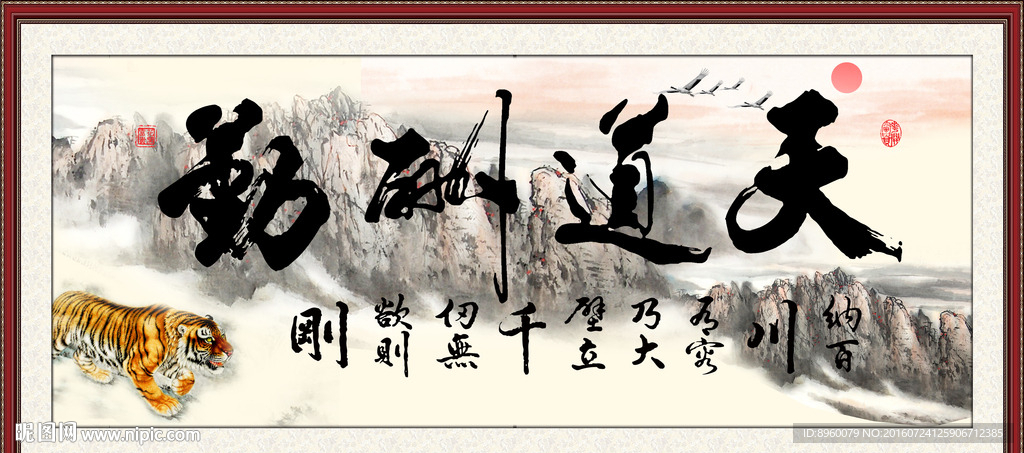 天道酬勤
納百
川
有容
乃大
壁立
千
仞無
欲則
剛
昵图网 www.nipic.com
ID:8960079 NO:20160724125906712385